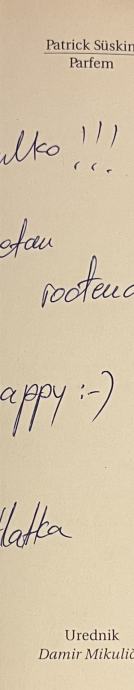 Patrick Süskin
Parfem
ulko !!!
otan
rođend
appy :-)
latka
Urednik
Damir Mikulić